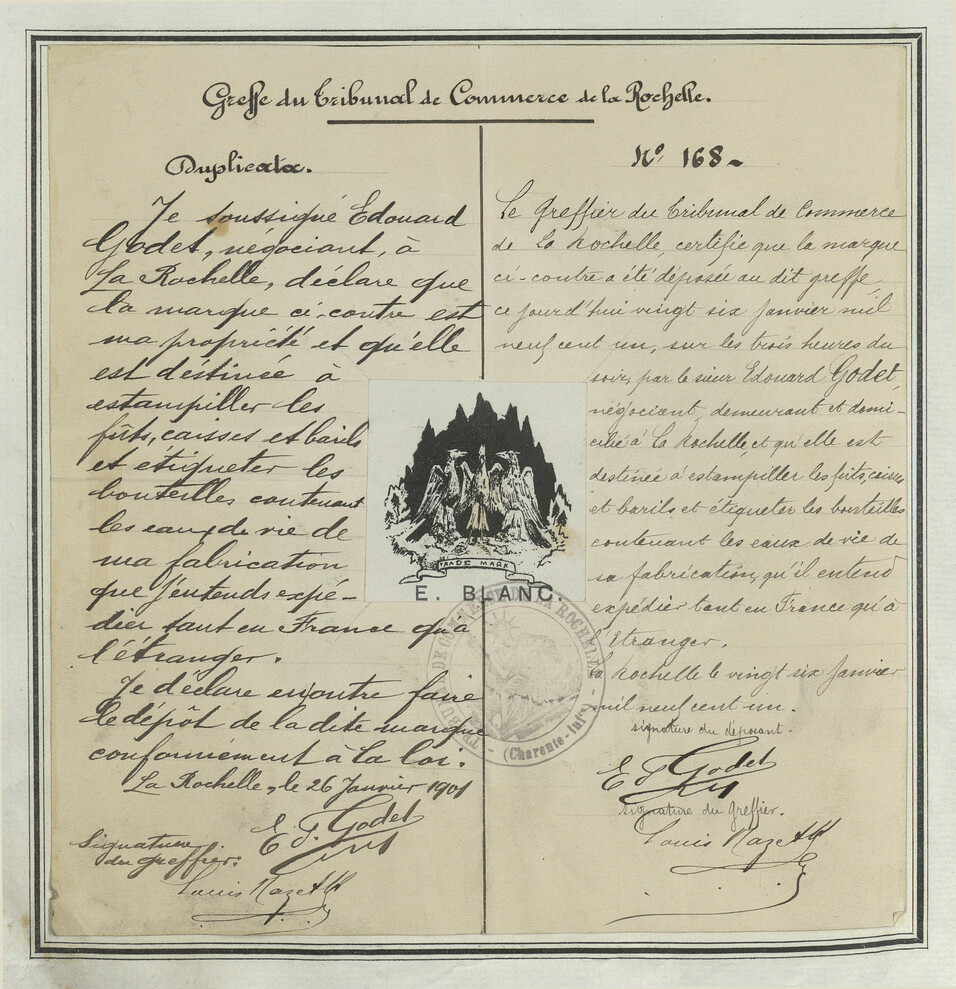 Greffe du Tribunal de Commerce de la Rochelle.
Duplicata.
Je soussigné Edouard
Godet, négociant, à
La Rochelle, déclare que
la marque ci-contre est
ma propriété et qu'elle
est destinée à
estampiller les
fûts, caisses et barils
et étiqueter les
bouteilles contenant
les eaux de vie de
ma fabrication
que j'entends expé-
dier tant en France qu'à
l'étranger.
Je déclare en outre faire
le dépôt de la dite marque
conformément à la loi.
La Rochelle, le 26 Janvier 1901
E G. Godet
Signature
du greffier:
Louis
TRADE MARK
E. BLANC.
TRIBUNAL DE COMMERCE DE LA ROCHELLE
(Charente-Infre)
No 168_
Le Greffier du Tribunal de Commerce
de La Rochelle, certifie que la marque
ci-contre a été déposée au dit greffe,
ce jourd'hui vingt six Janvier mil
neuf cent un, sur les trois heures du
soir, par le sieur Edouard Godet,
négociant, demeurant et domi-
cilié à La Rochelle, et qu'elle est
destinée à estampiller les fûts, caisses
et barils et étiqueter les bouteilles
contenant les eaux de vie de
sa fabrication, qu'il entend
expédier tant en France qu'à
l'Etranger.
La Rochelle le vingt six Janvier
mil neuf cent un.
signature du déposant.
E G. Godet
signature du Greffier.
Louis